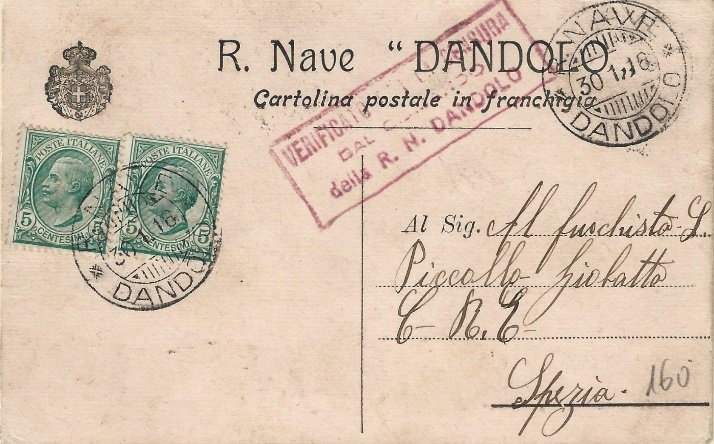 R. Nave "DANDOLO"
Cartolina postale in franchigia
VERIFICATO CENSURA
DAL
della R. N. DANDOLO
NAVE
30 1 16
* DANDOLO *
POSTE ITALIANE
5 CENTESIMI 5
POSTE ITALIANE
5 CENTESIMI 5
16
* DANDOLO
Al Sig. Al fuochista S.
Piccollo Giobatta
C- R. E-
Spezia.
160